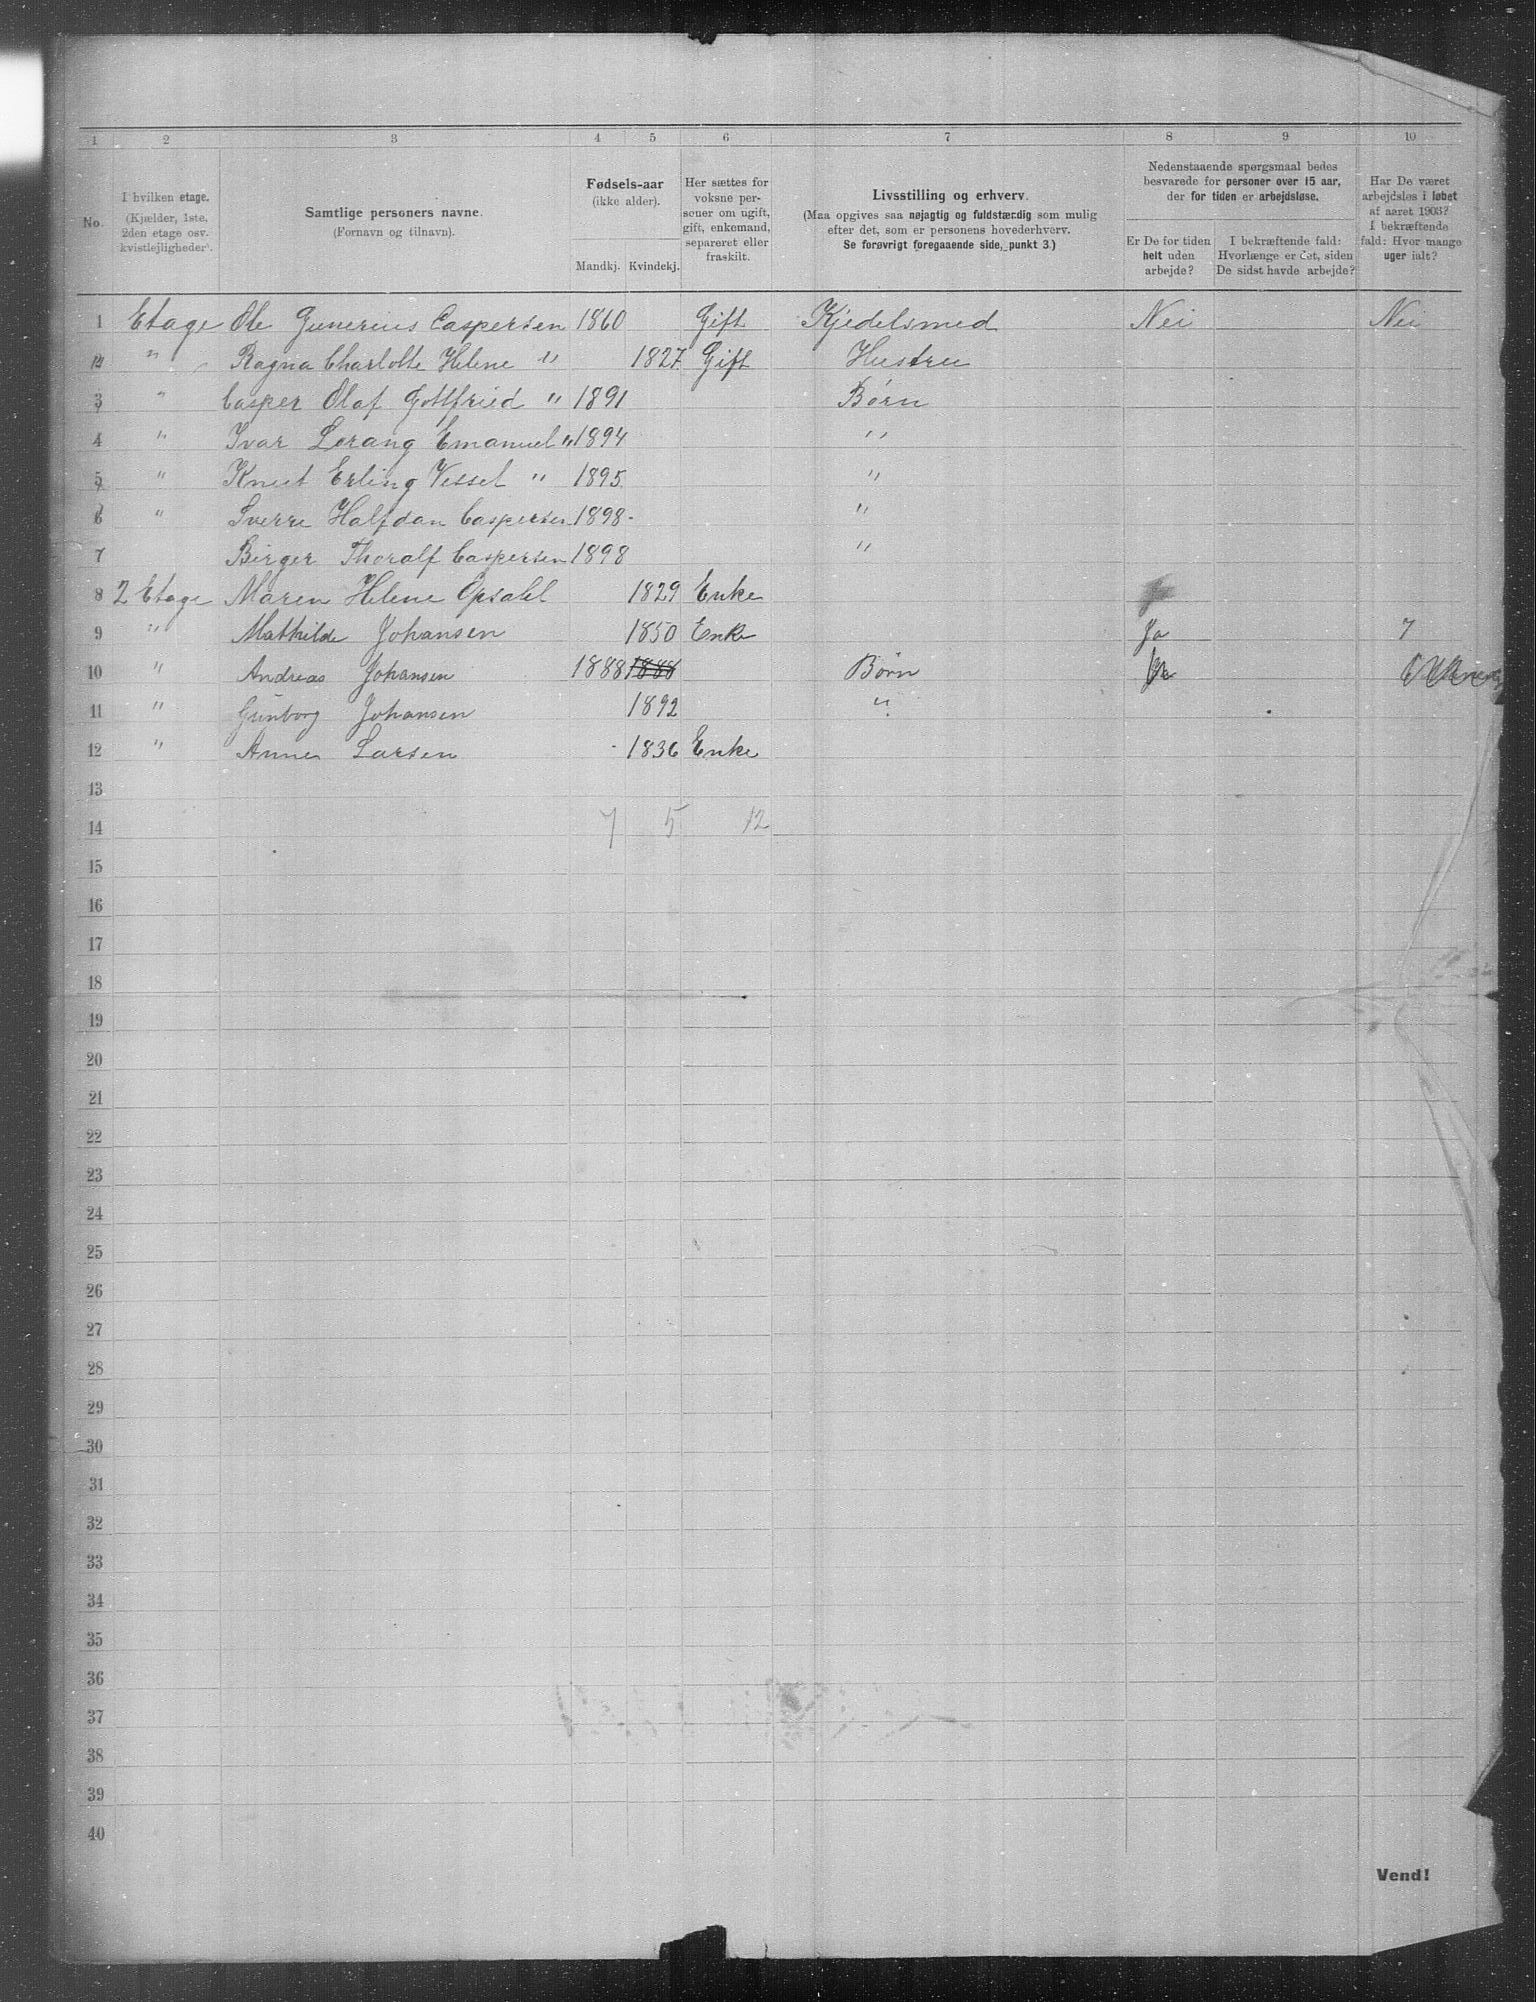 1 2 3 4 5 6 7 8 9 10
No.
I hvilken etage.
(Kjælder, 1ste,
2den etage osv.
kvistlejligheder).
Samtlige personers navne.
(Fornavn og tilnavn).
Fødsels-aar
(ikke alder).
Mandkj. Kvindekj.
Her sættes for
voksne per-
soner om ugift,
gift, enkemand,
separeret eller
fraskilt.
Livsstilling og erhverv.
(Maa opgives saa nøjagtig og fuldstærdig som mulig
efter det, som er personens hovederhverv.
Se forøvrigt foregaaende side, punkt 3.)
Nedenstaaende spørgsmaal bedes
besvarede for personer over 15 aar,
der for tiden er arbejdsløse.
Er De for tiden
helt uden
arbejde?
I bekræftende fald:
Hvorlænge er det, siden
De sidst havde arbejde?
Har De været
arbejdsløs i løbet
af aaret 1903?
I bekræftende
fald: Hvor mange
uger ialt?
1 Etage Ole Gunerius Caspersen 1860 Gift Kjedelsmed Nei Nei
2 " Ragna Charlotte Helene " 1827 Gift Hustru
3 " Casper Olaf Gottfried " 1891 Børn
4 " Ivar Lorang Emanuel " 1894 "
5 " Knut Erling Vessel " 1895 "
6 " Sverre Halfdan Caspersen 1898 "
7 Birger Thoralf Caspersen 1898 "
8 2 Etage Maren Helene Opsahl 1829 Enke
9 " Mathilde Johansen 1850 Enke Ja 7
10 " Andreas Johansen 1888 1888 Børn
11 " Gunborg Johansen 1892 "
12 " Anne Larsen 1836 Enke
13
14 7 5 12
15
16
17
18
19
20
21
22
23
24
25
26
27
28
29
30
31
32
33
34
35
36
37
38
39
40
Vend!